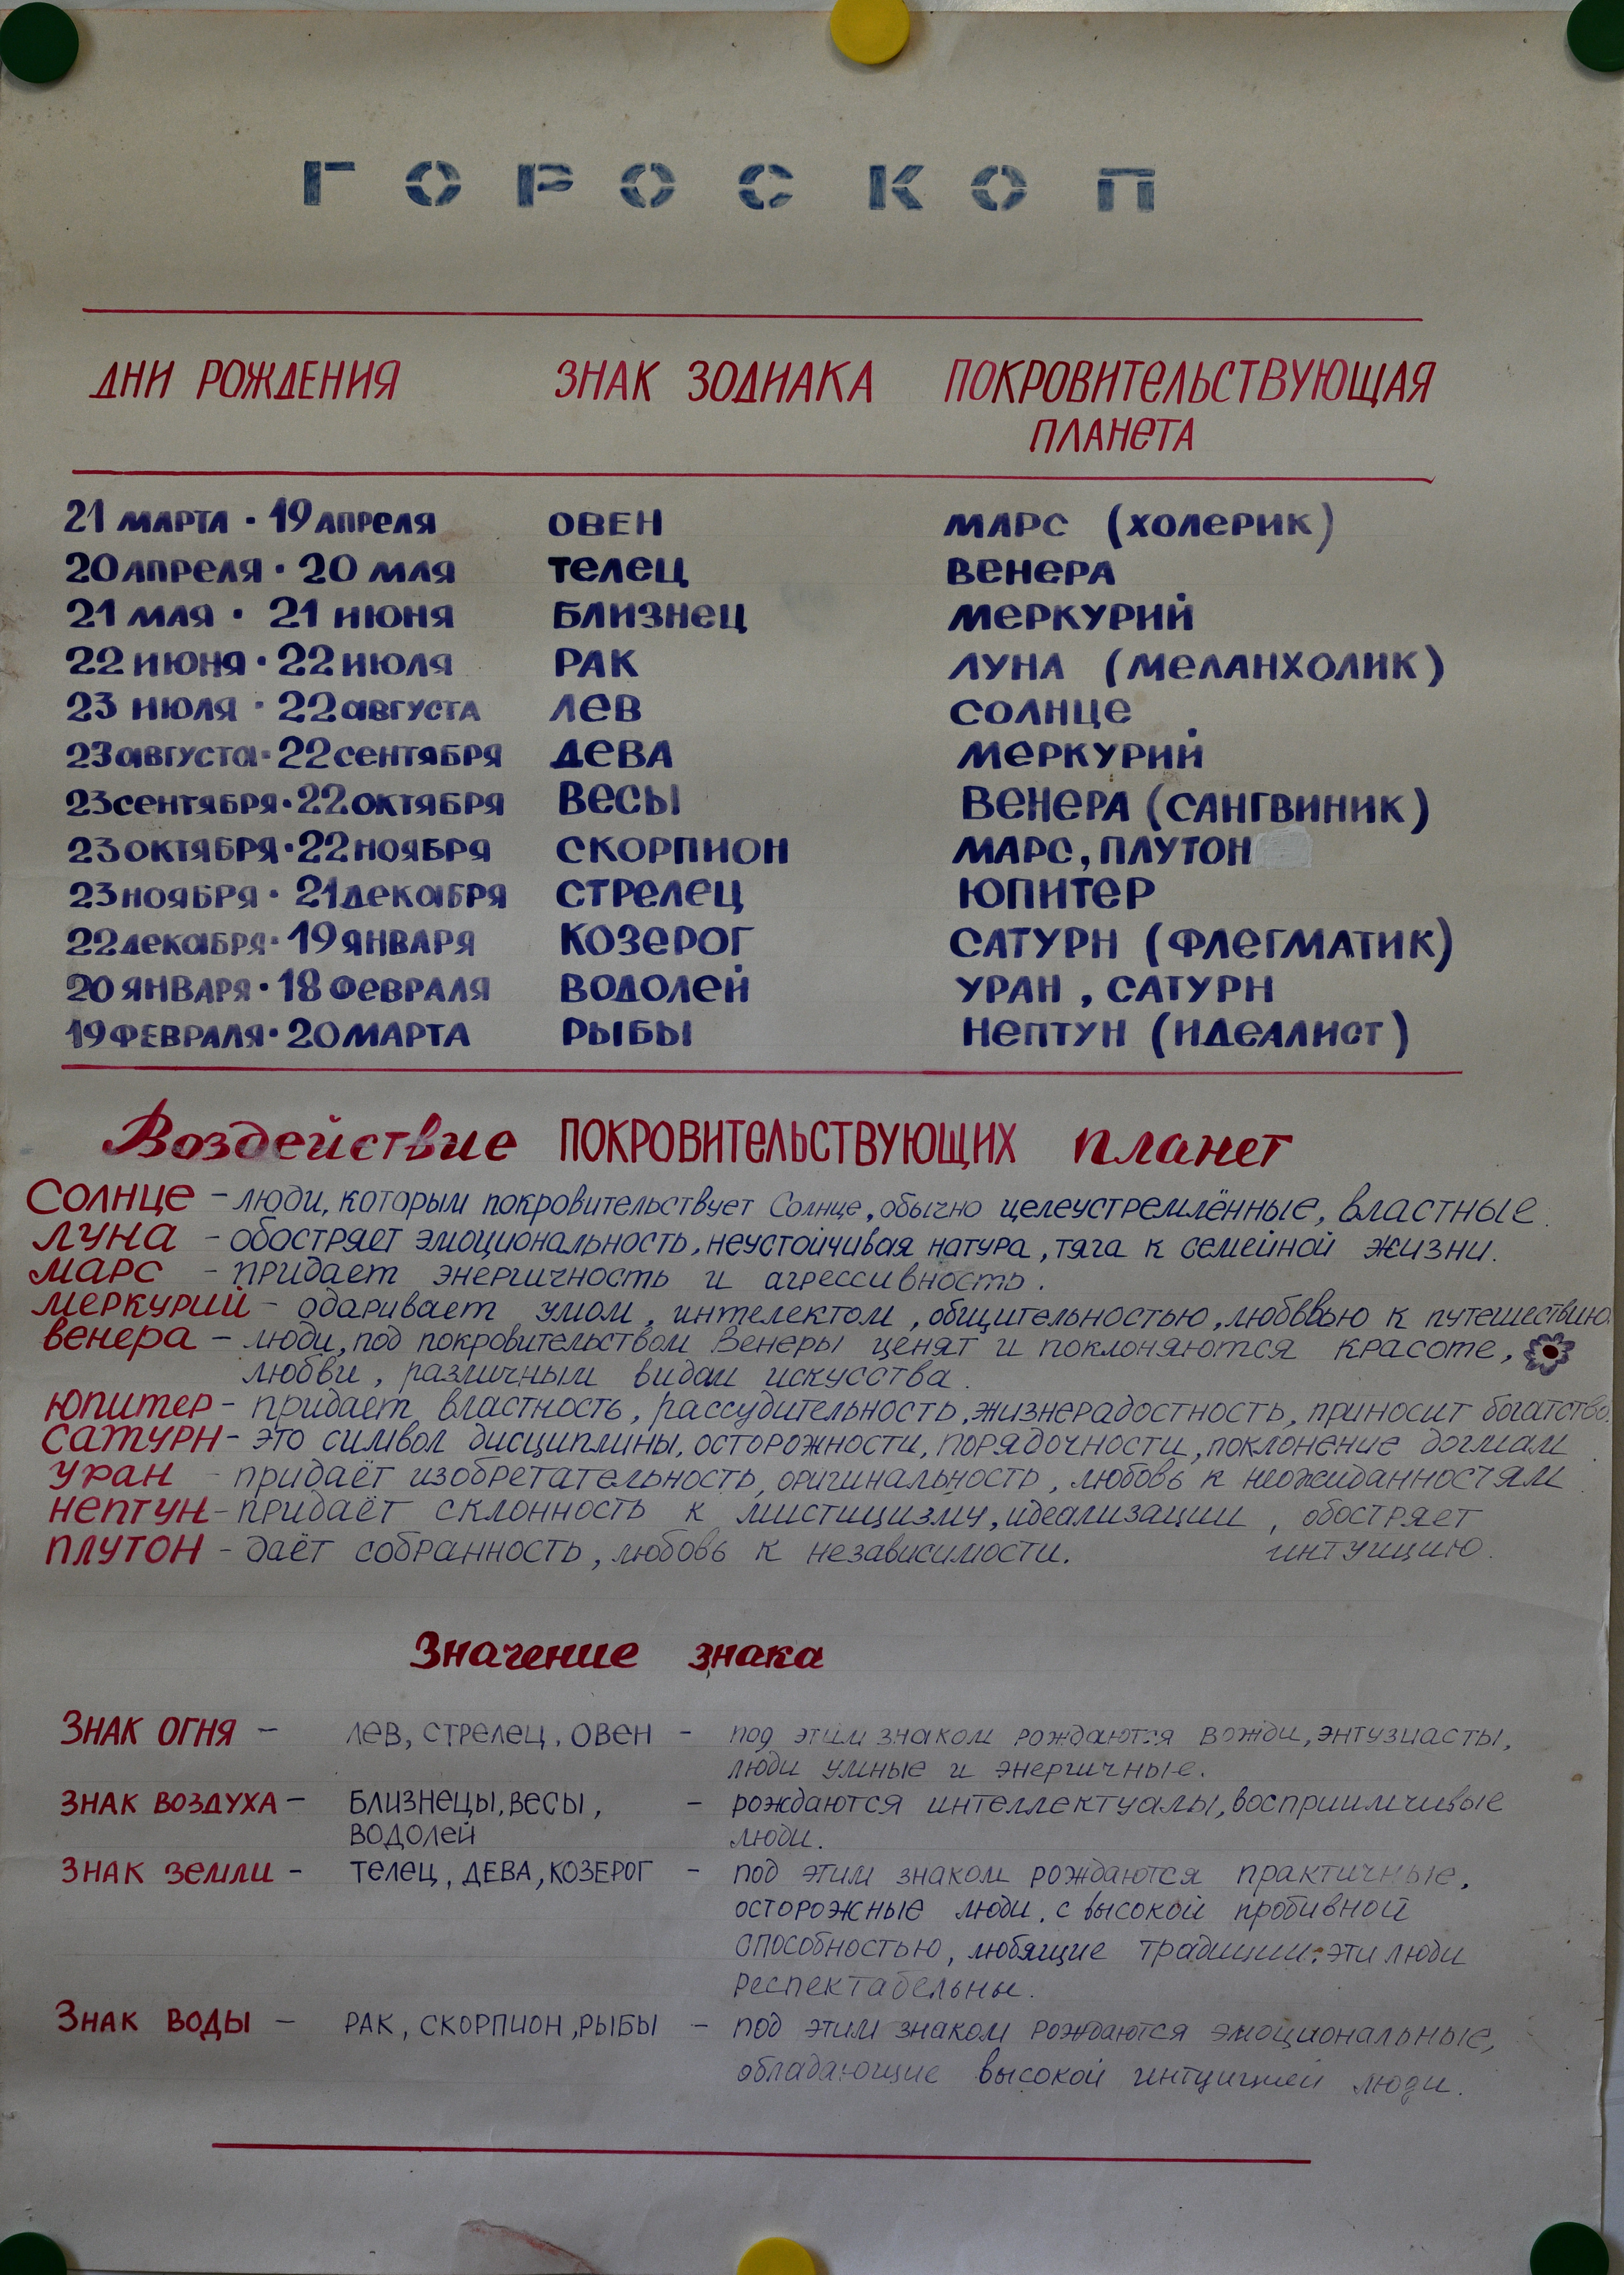 ГОРОСКОП
ДНИ РОЖДЕНИЯ ЗНАК ЗОДИАКА ПОКРОВИТЕЛЬСТВУЮЩАЯ
ПЛАНЕТА
21 МАРТА · 19 АПРЕЛЯ ОВЕН МАРС (ХОЛЕРИК)
20 АПРЕЛЯ · 20 МАЯ ТЕЛЕЦ ВЕНЕРА
21 МАЯ · 21 ИЮНЯ БЛИЗНЕЦ МЕРКУРИЙ
22 ИЮНЯ · 22 ИЮЛЯ РАК ЛУНА (МЕЛАНХОЛИК)
23 ИЮЛЯ · 22 АВГУСТА ЛЕВ СОЛНЦЕ
23 АВГУСТА · 22 СЕНТЯБРЯ ДЕВА МЕРКУРИЙ
23 СЕНТЯБРЯ · 22 ОКТЯБРЯ ВЕСЫ ВЕНЕРА (САНГВИНИК)
23 ОКТЯБРЯ · 22 НОЯБРЯ СКОРПИОН МАРС, ПЛУТОН
23 НОЯБРЯ · 21 ДЕКАБРЯ СТРЕЛЕЦ ЮПИТЕР
22 ДЕКАБРЯ · 19 ЯНВАРЯ КОЗЕРОГ САТУРН (ФЛЕГМАТИК)
20 ЯНВАРЯ · 18 ФЕВРАЛЯ ВОДОЛЕЙ УРАН, САТУРН
19 ФЕВРАЛЯ · 20 МАРТА РЫБЫ НЕПТУН (ИДЕАЛИСТ)
Воздействие ПОКРОВИТЕЛЬСТВУЮЩИХ планет
СОЛНЦЕ – люди, которым покровительствует Солнце, обычно целеустремлённые, властные.
ЛУНА – обостряет эмоциональность, неустойчивая натура, тяга к семейной жизни.
МАРС – придает энергичность и агрессивность.
МЕРКУРИЙ – одаривает умом, интелектом, общительностью, любввью к путешествию.
ВЕНЕРА – люди, под покровительством Венеры ценят и поклоняются красоте,
любви, различным видам искусства.
ЮПИТЕР – придает властность, рассудительность, жизнерадостность, приносит богатство.
САТУРН – это символ дисциплины, осторожности, порядочности, поклонение догмам
УРАН – придаёт изобретательность, оригинальность, любовь к неожиданностям.
НЕПТУН – придаёт склонность к мистицизму, идеализации, обостряет
ПЛУТОН – даёт собранность, любовь к независимости. интуицию.
Значение знака
ЗНАК ОГНЯ – ЛЕВ, СТРЕЛЕЦ, ОВЕН – под этим знаком рождаются вожди, энтузиасты,
люди умные и энергичные.
ЗНАК ВОЗДУХА – БЛИЗНЕЦЫ, ВЕСЫ, – рождаются интеллектуалы, восприимчивые
ВОДОЛЕЙ люди.
ЗНАК ЗЕМЛИ – ТЕЛЕЦ, ДЕВА, КОЗЕРОГ – под этим знаком рождаются практичные,
осторожные люди, с высокой пробивной
способностью, любящие традиции. эти люди
респектабельны.
ЗНАК ВОДЫ – РАК, СКОРПИОН, РЫБЫ – под этим знаком рождаются эмоциональные,
обладающие высокой интуицией люди.